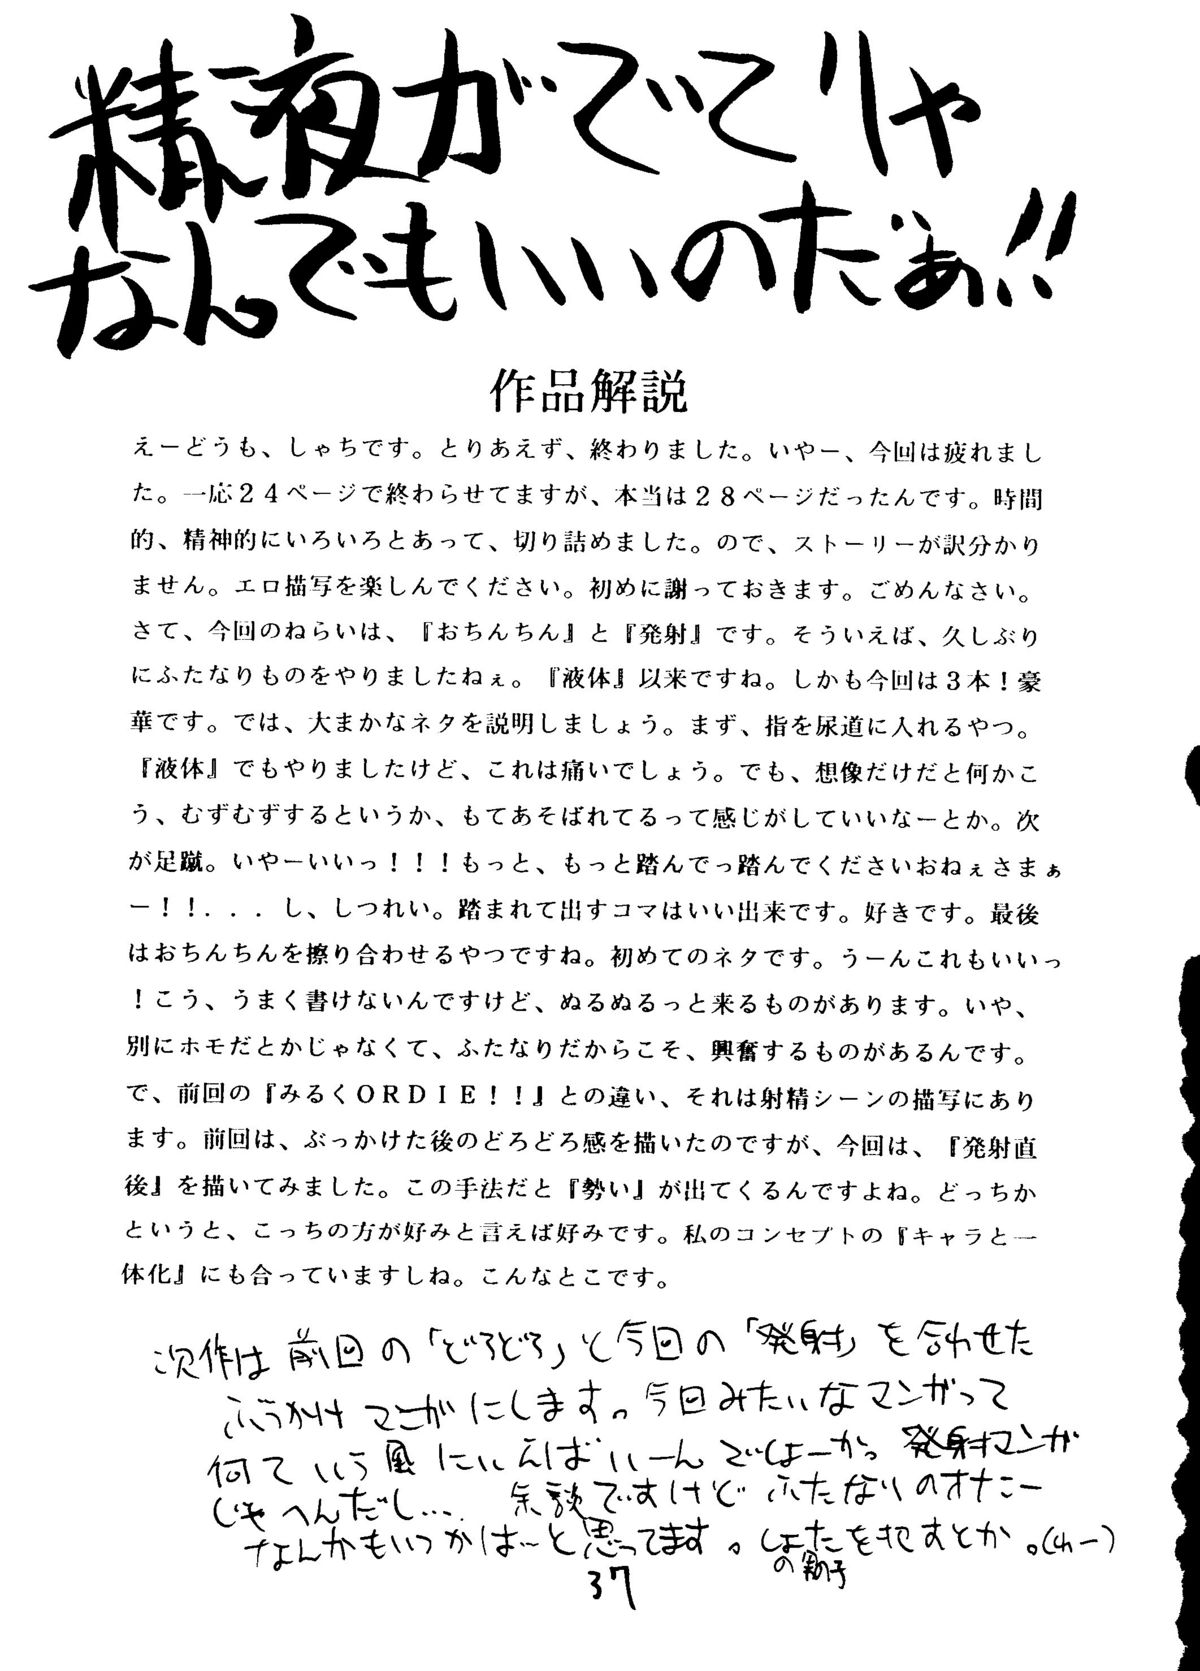 精液がでてりゃ
なんでもいいのだぁ!!
作品解説
えーどうも、しゃちです。とりあえず、終わりました。いやー、今回は疲れまし
た。一応24ページで終わらせてますが、本当は28ページだったんです。時間
的、精神的にいろいろとあって、切り詰めました。ので、ストーリーが訳分かり
ません。エロ描写を楽しんでください。初めに謝っておきます。ごめんなさい。
さて、今回のねらいは、『おちんちん』と『発射』です。そういえば、久しぶり
にふたなりものをやりましたねぇ。『液体』以来ですね。しかも今回は3本!豪
華です。では、大まかなネタを説明しましょう。まず、指を尿道に入れるやつ。
『液体』でもやりましたけど、これは痛いでしょう。でも、想像だけだと何かこ
う、むずむずするというか、もてあそばれてるって感じがしていいなーとか。次
が足蹴。いやーいいっ!!!もっと、もっと踏んでっ踏んでくださいおねぇさまぁ
ー!!...し、しつれい。踏まれて出すコマはいい出来です。好きです。最後
はおちんちんを擦り合わせるやつですね。初めてのネタです。うーんこれもいいっ
!こう、うまく書けないんですけど、ぬるぬるっと来るものがあります。いや、
別にホモだとかじゃなくて、ふたなりだからこそ、興奮するものがあるんです。
で、前回の『みるくORDIE!!』との違い、それは射精シーンの描写にあり
ます。前回は、ぶっかけた後のどろどろ感を描いたのですが、今回は、『発射直
後』を描いてみました。この手法だと『勢い』が出てくるんですよね。どっちか
というと、こっちの方が好みと言えば好みです。私のコンセプトの『キャラと一
体化』にも合っていますしね。こんなとこです。
次作は前回の「どろどろ」と今回の「発射」を合わせた
ぶっかけマンガにします。今回みたいなマンガって
何ていう風にいえばいーんでしょーか。発射マンガ
じゃへんだし… 余談ですけどふたなりのオナニー
なんかもいつかは…と思ってます。
37